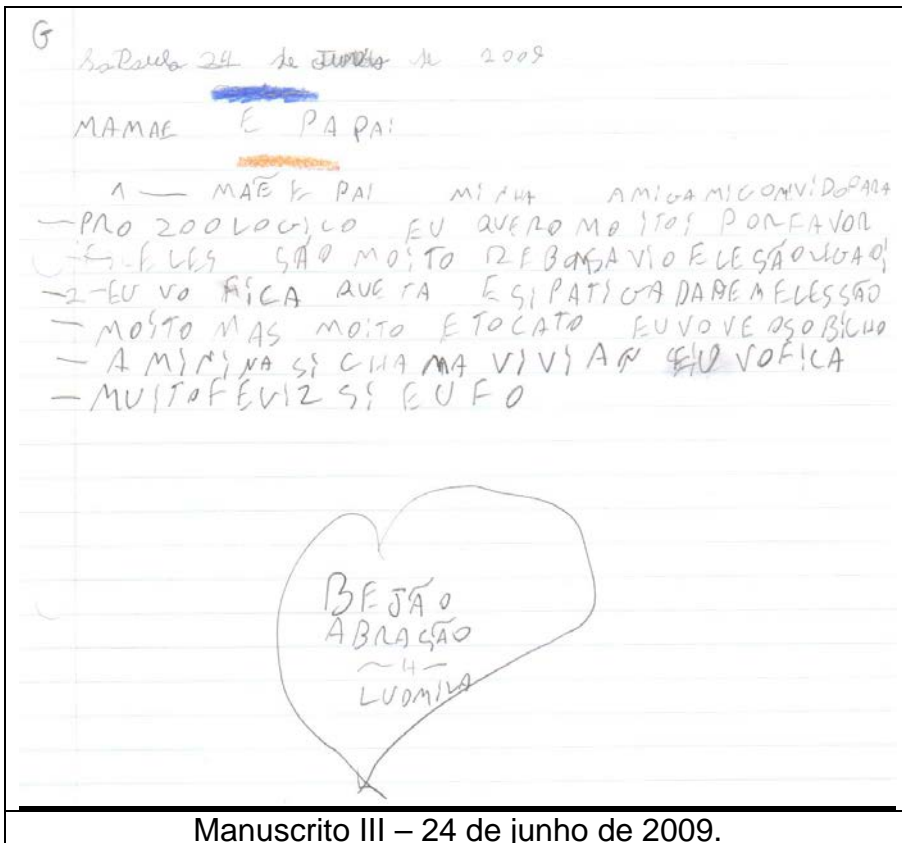 G
SaoPaulo 24 de JUNho de 2009
MAMAE E PAPAI
1 — MAẼ E PAI MINHA AMIGA MI CONVIDO PARA
— PRO ZOOLOGICO EU QUERO MOITOI PORFAVOR
ELES SÃO MOITO
— 2 — EU VO FICA QUETA E SIPATICA ELES SÃO
— MOITO MAS MOITO E TOCATO EU VO VE OSOBICHO
— A MININA SI CHAMA VIVIAN EU VO FICA
— MUITO FELIZ SI EU FO
BEJÃO
ABRAÇÃO
~ 4 —
LUDMILA
Manuscrito III – 24 de junho de 2009.